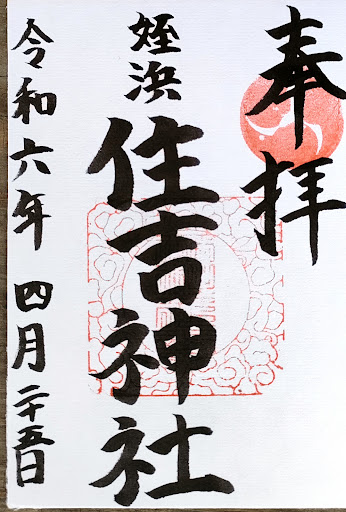 奉拝
姪浜
住吉神社
令和六年 四月二十五日